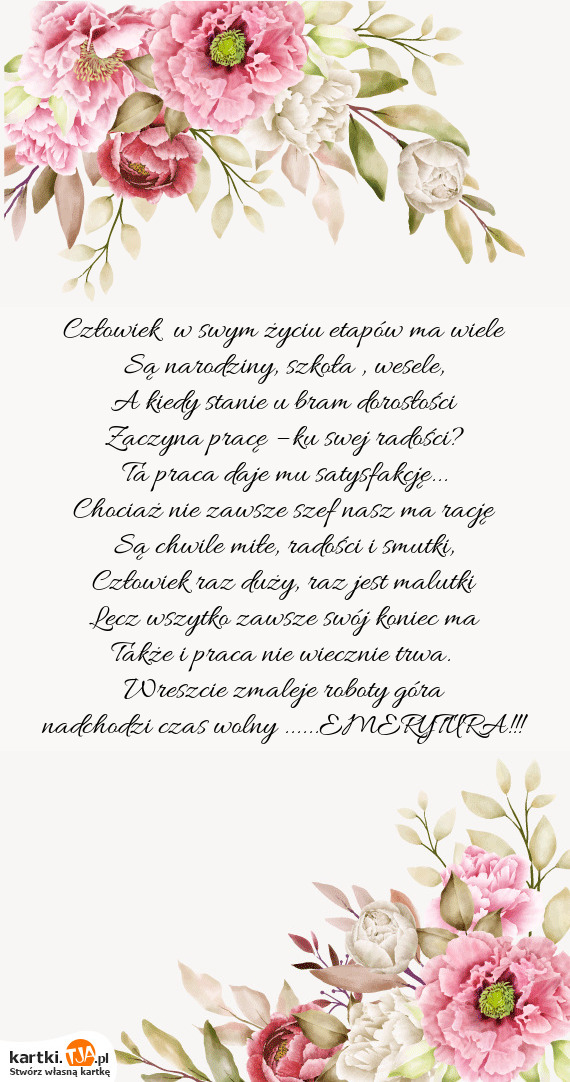 Człowiek w swym życiu etapów ma wiele
Są narodziny, szkoła , wesele,
A kiedy stanie u bram dorosłości
Zaczyna pracę – ku swej radości?
Ta praca daje mu satysfakcję...
Chociaż nie zawsze szef nasz ma rację
Są chwile miłe, radości i smutki,
Człowiek raz duży, raz jest malutki
Lecz wszytko zawsze swój koniec ma
Także i praca nie wiecznie trwa.
Wreszcie zmaleje roboty góra
nadchodzi czas wolny ......EMERYTURA!!!
kartki.TJA.pl
Stwórz własną kartkę